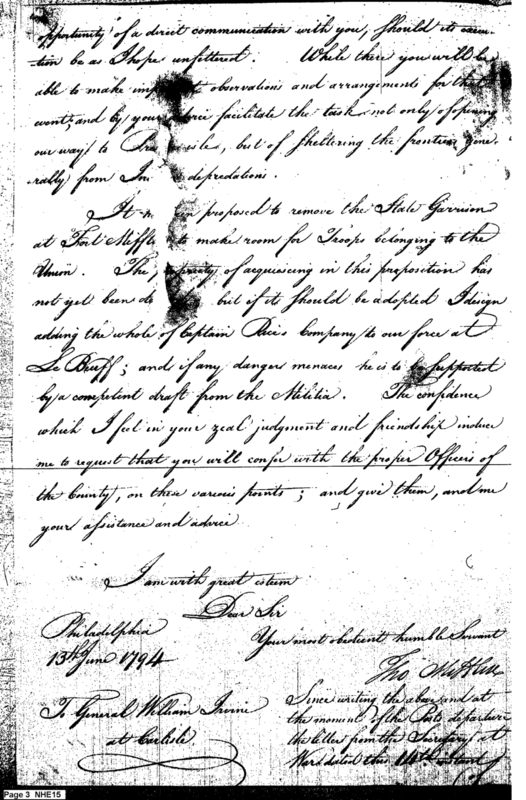 opportunity of a direct communication with you, should its execu-
tion be as I hope unfettered. While there you will be
able to make observations and arrangements for the
event; and by your facilitate the task not only of opening
our way to , but of sheltering the frontier gene-
rally from depredations.
It proposed to remove the State Garrison
at Fort Mifflin to make room for Troops belonging to the
Union. The of acquiescing in this proposition has
not yet been but if it should be adopted I design
adding the whole of Captain Company to our force at
Le Beuff; and if any danger menaces he is to be supported
by a competent draft from the Militia. The confidence
which I feel in your zeal judgment and friendship induce
me to request that you will confer with the proper Officers of
the County, on these various points; and give them, and me
your assistance and advice
I am with great esteem
Dear Sir
Philadelphia
Your most obedient humble Servant
13th June 1794
Tho Mifflin
To General William Irvine
at Carlisle
Since writing the above and at
the moment of the Posts departure
the letter from the Secretary at
War dated the 14th instant
Page 3 NHE15